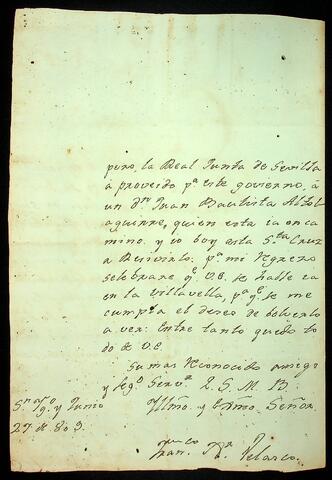 pero, la Real Junta de Sevilla
a proveido pª este govierno, â
un dn Juan Bautista Altol
aguirre, quien esta ia en ca
mino. y io boy esta Sta Cruz
a Resivirlo: pª mi Regreso
selebrare qe V.E. se halle ca
en la Villavella, pª qe se me
cumpla el deseo de bolverlo
a ver: Entre tanto quedo to
do de V.E.
su mas Reconocido amigo
y segº Servr Q. S. M. B.
Yllmo. y Exmo. Señor.
y Junio
27 de 809.
Velasco.